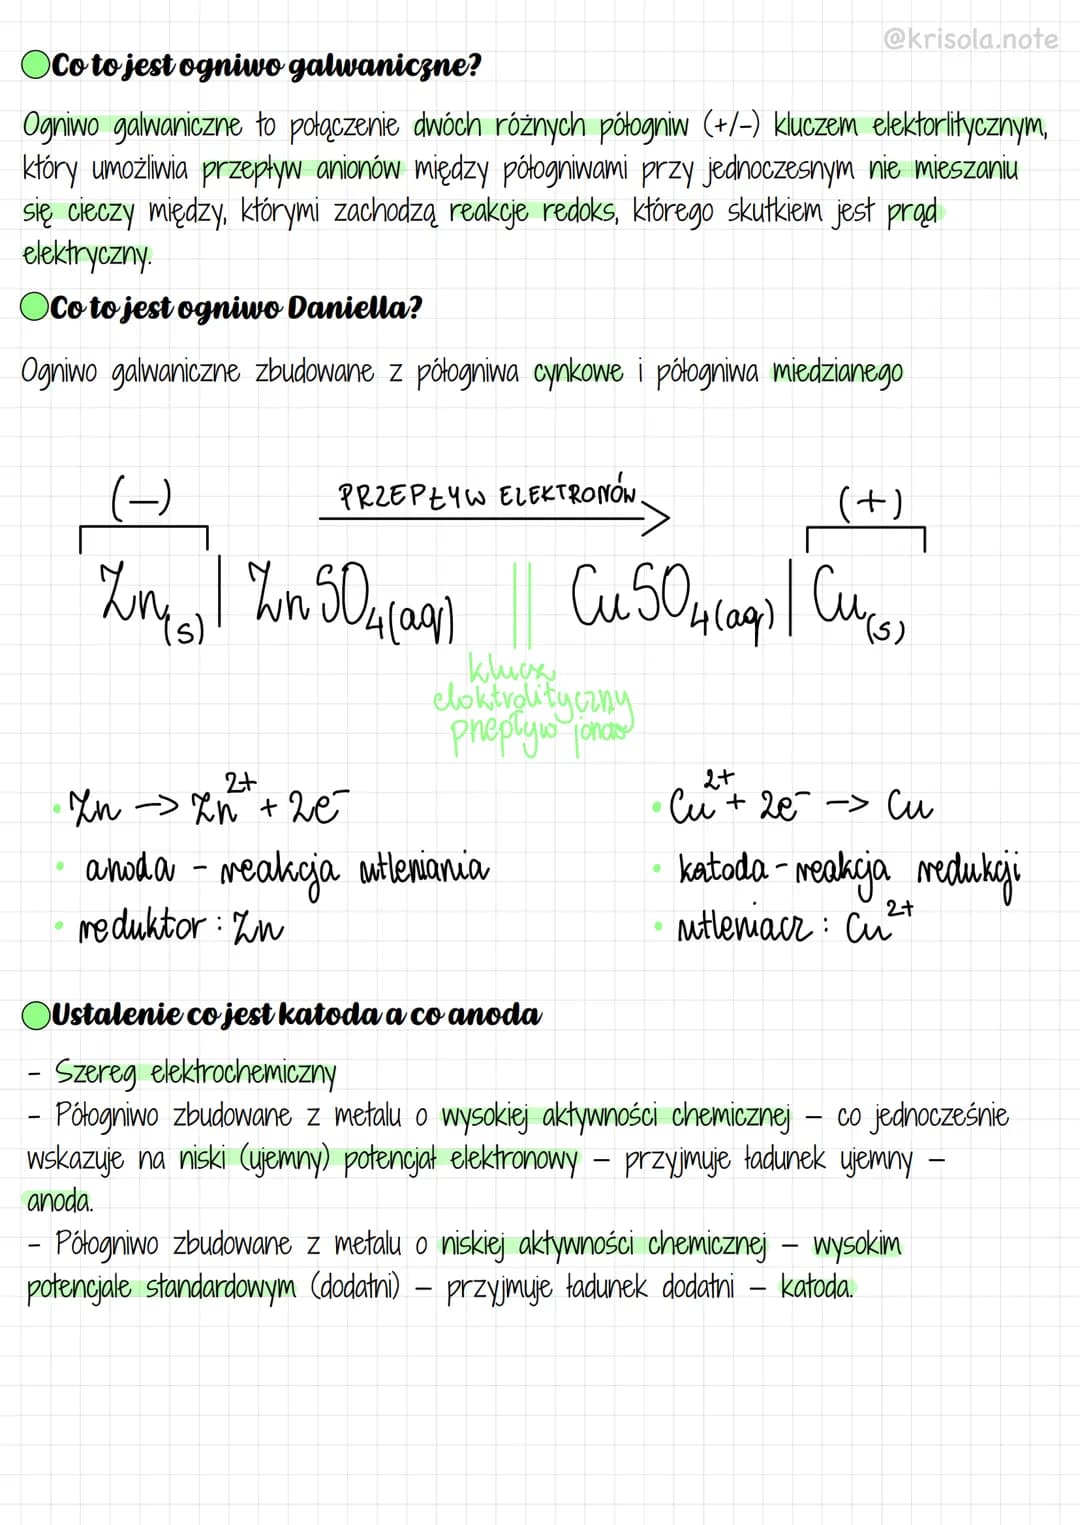 @krisola.note
Co to jest ogniwo galwaniczne?
Ogniwo galwaniczne to połączenie dwóch różnych półogniw (+/-) kluczem elektorlitycznym,
który umożliwia przepływ anionów między półogniwami przy jednoczesnym nie mieszaniu
się cieczy między, którymi zachodzą reakcje redoks, którego skutkiem jest prąd
elektryczny.
Co to jest ogniwo Daniella?
Ogniwo galwaniczne zbudowane z półogniwa cynkowe i półogniwa miedzianego
(-) PRZEPŁYW ELEKTRONÓW (+)
Zn(s) | ZnSO4(aq) || CuSO4(aq) | Cu(s)
klucz
elektrolityczny
przepływ jonów
• Zn -> Zn2+ + 2e- • Cu2+ + 2e- -> Cu
• anoda - reakcja utleniania • katoda - reakcja redukcji
• reduktor : Zn • utleniacz : Cu2+
Ustalenie co jest katoda a co anoda
- Szereg elektrochemiczny
- Półogniwo zbudowane z metalu o wysokiej aktywności chemicznej – co jednocześnie
wskazuje na niski (ujemny) potencjał elektronowy – przyjmuje ładunek ujemny –
anoda.
- Półogniwo zbudowane z metalu o niskiej aktywności chemicznej – wysokim
potencjale standardowym (dodatni) – przyjmuje ładunek dodatni – katoda.